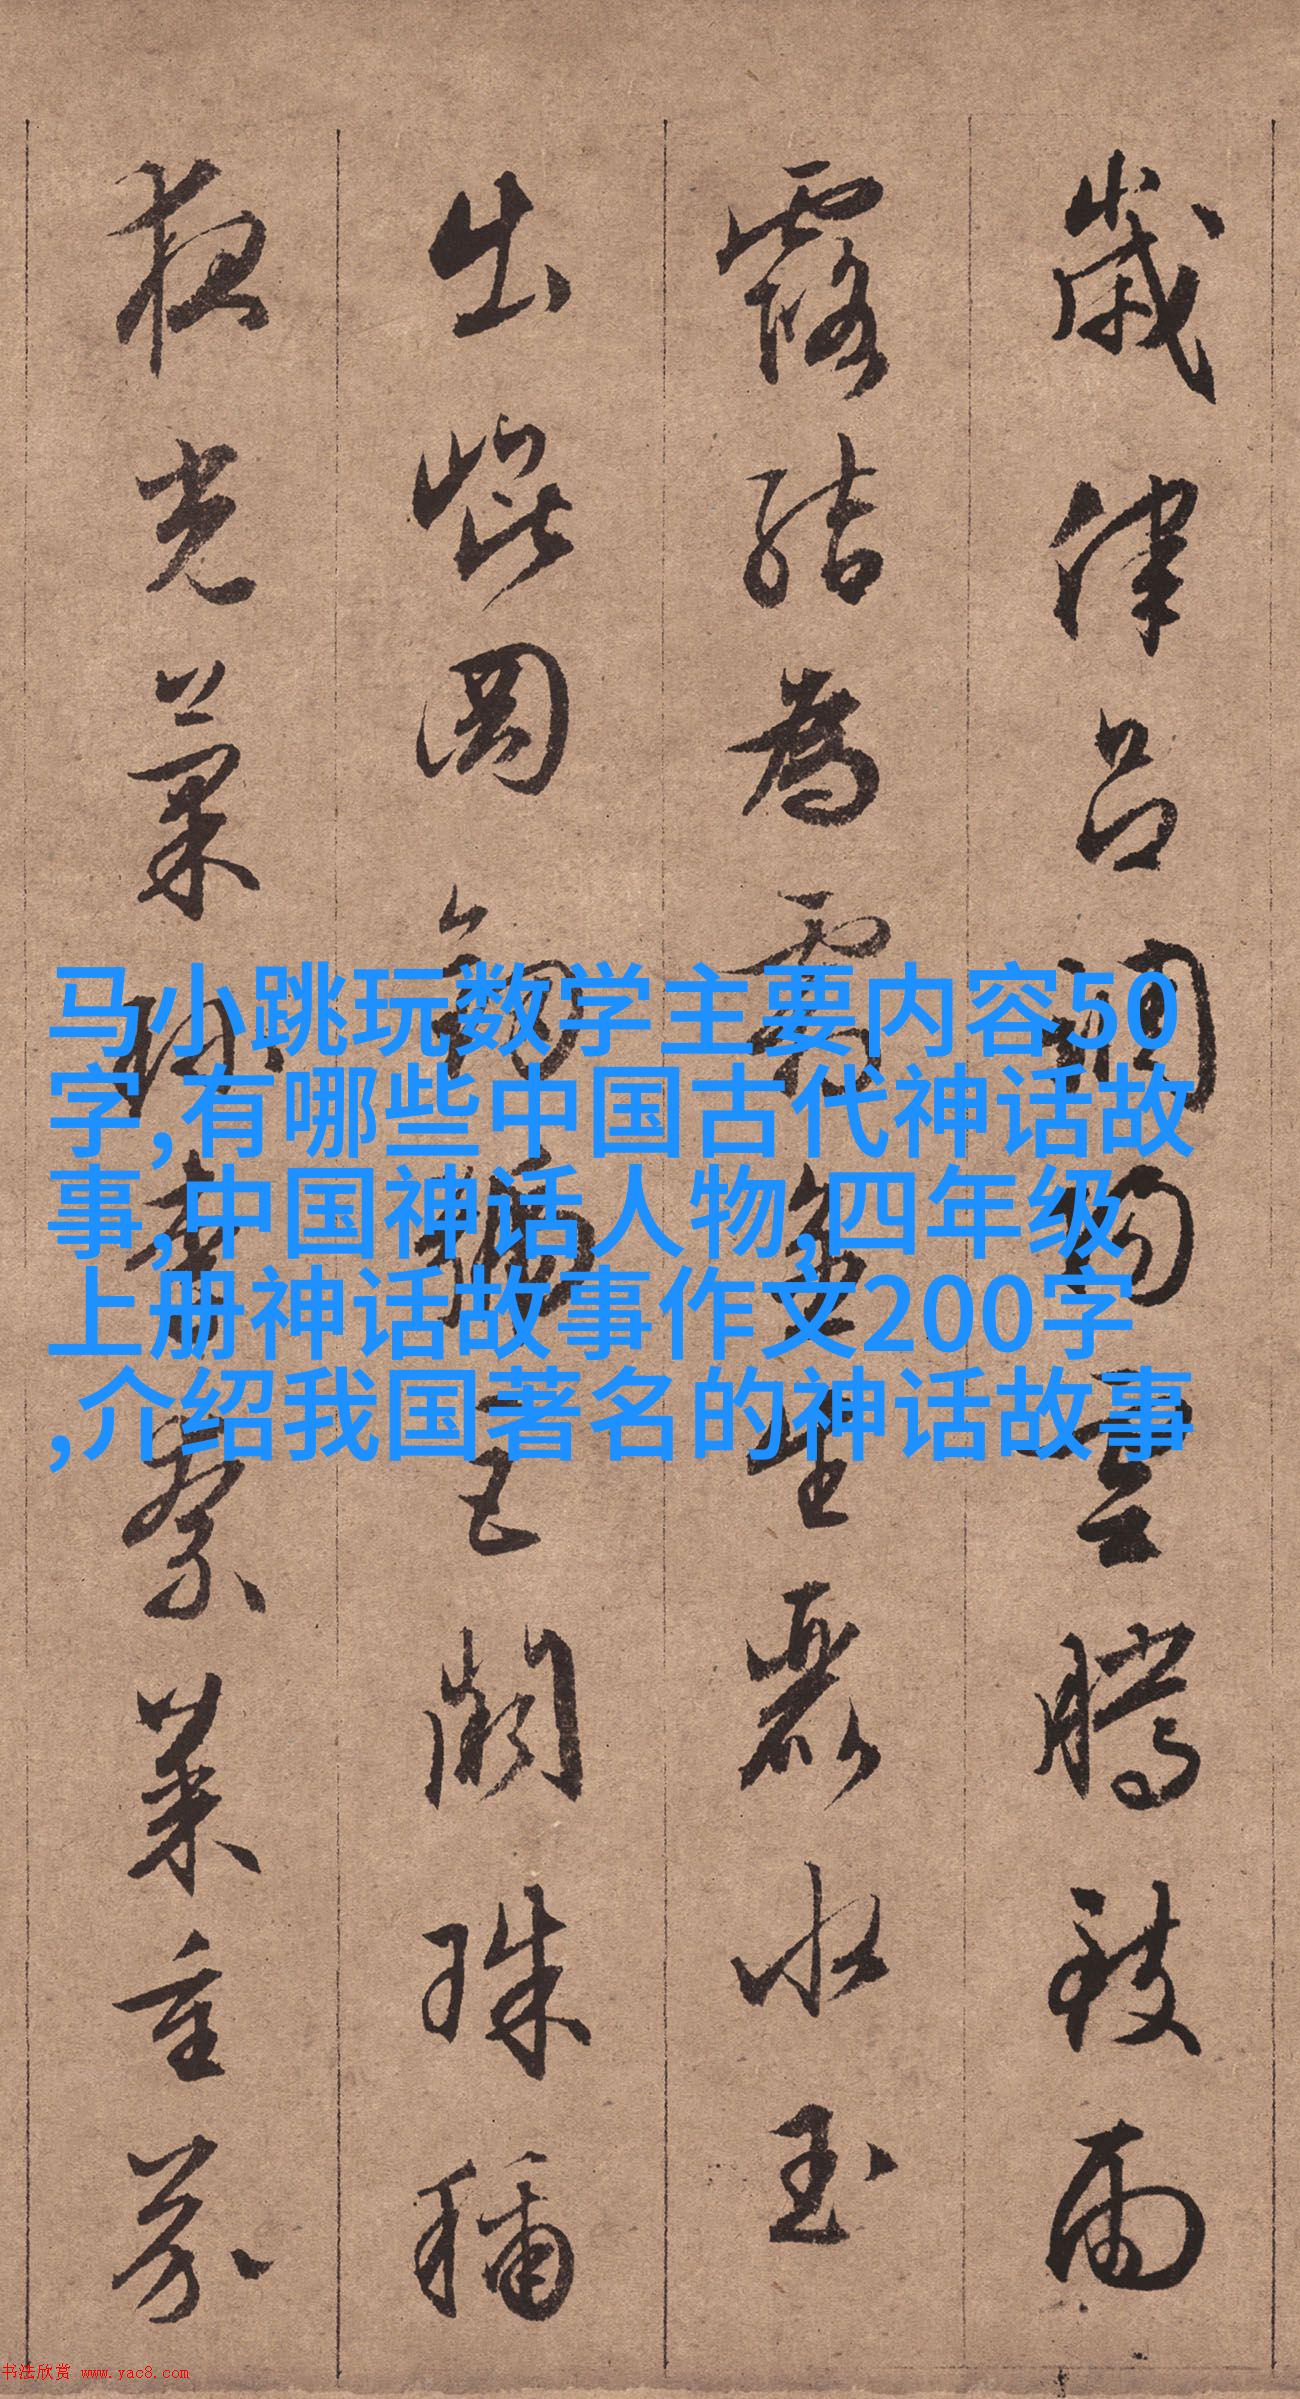 歲律呂調陽雲騰致雨
露結為霜金生麗水玉
出崐岡劍號巨闕珠稱
夜光菓珎李柰菜重芥
马小跳玩数学主要内容50
字,有哪些中国古代神话故
事,中国神话人物,四年级
上册神话故事作文200字
,介绍我国著名的神话故事
书法欣赏 www.yac8.com